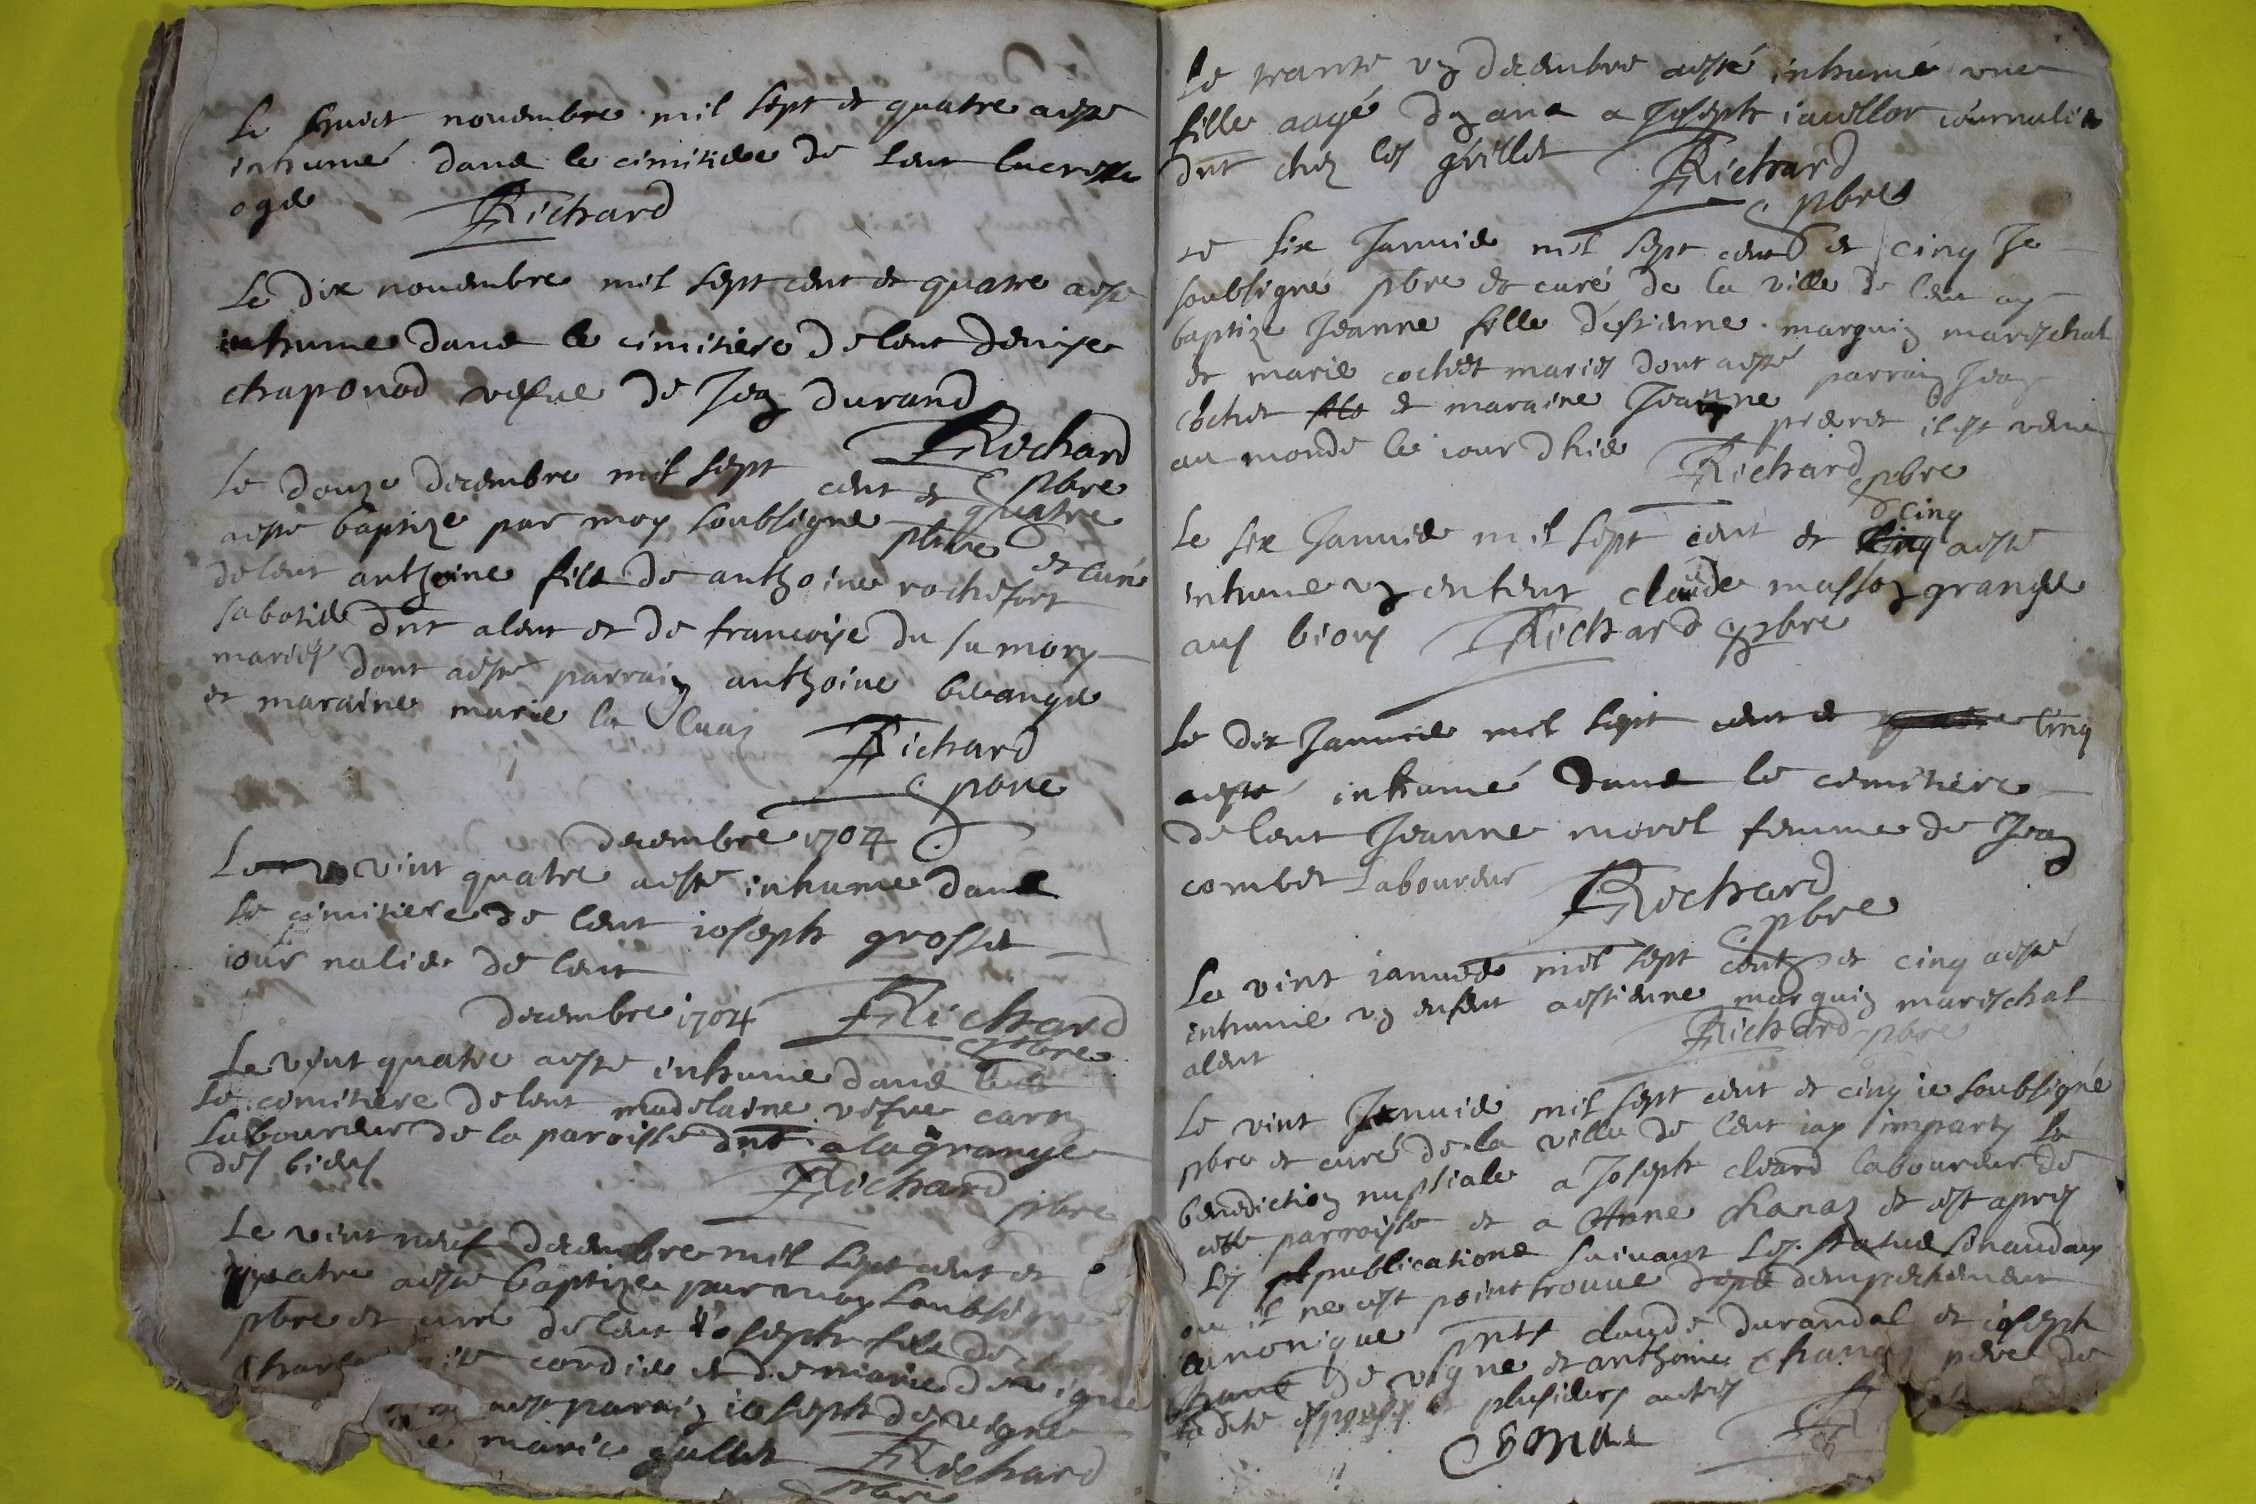 Le huict novembre mil sept et quatre aesté
inhumé dans le cimitiere de lent lucresse
oger Richard
Le dix novembre mil sept cent et quatre aesté
inhume dans le cimitiere de lent denise
chaponod vefue de Jean durand
Richard
pbre
Le douze decembre mil sept cent et quatre
aesté baptize par moy soubsigné pbre et curé
de lent anthoine fils de anthoine rochefort
sabotier dnt a lent et de francoise du
maries dont aesté parrain anthoine berangier
et maraine marie la
Richard
pbre
decembre 1704
Le vint quatre aesté inhume dans
le cimitiere de lent ioseph grosset
iournalier de lent
decembre 1704 Richard
pbre
Le vint quatre aesté inhumé dans
le cimitiere de lent madelaine vefue caron
laboureur de la paroisse dnt a la grange
des bieus
Richard
pbre
Le vint neuf decembre mil sept cent et
quatre aesté baptize par moy soubsigné
pbre et curé de lent ioseph fils de
cordier et de marie de vigne
aesté parain ioseph de vigne
marie gullet Richard
pbre
Le trante un decembre aesté inhumé une
fille aagé dun ans a Joseph iavillor iournalier
dnt chez les grillet Richard
pbre
Le six Januier mil sept cent et cinq Je
soubsigné pbre et curé de la ville de lent ay
baptize Jeanne fille destienne marguin mareschal
et marie cochet maries dont aesté parrain Jean
cochet et maraine Jeanne il est venu
au monde le iour dhier Richard pbre
Le six Januier mil sept cent et cinq aesté
inhumé un enfent claude masson granger
aus bious Richard pbre
Le dix Januier mil sept cent et cinq
aesté inhumé dans le cimitiere
de lent Jeanne morel femme de Jean
combet laboureur Richard
pbre
Le vint ianuier mil sept cent et cinq aesté
inhumé un enfent a estienne marguin mareschal
a lent Richard pbre
Le vint Januier mil sept cent et cinq ie soubsigné
pbre et curé de la ville de lent iay imparty la
benediction nuptiale a Joseph cleard laboureur de
cette parroisse et a Anne chanas et est apres
les publications suivant les
ou il ne cest point trouve dempechement
canonique pnts claude durandal et ioseph
de vigne et anthoine chanas pere de
la dite espouse et plusieurs autres